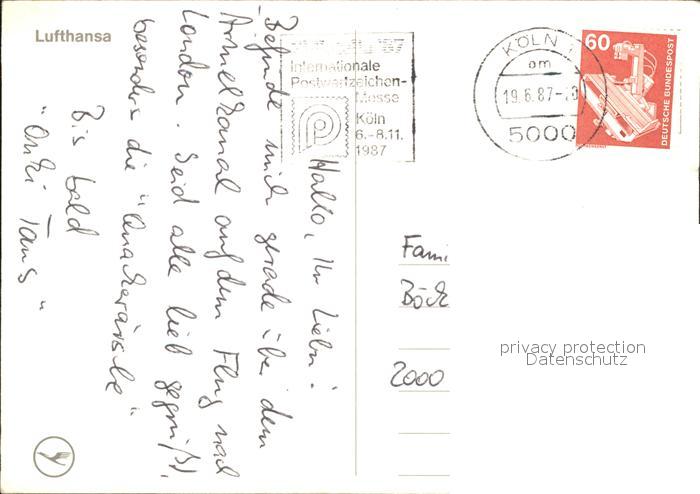 Lufthansa
Hallo, Ihr Lieben!
Befinde mich gerade über dem
Ärmelkanal auf dem Flug nach
London. Seid alle lieb gegrüßt,
besonders die
Bis bald
"Onki
'87
Internationale
Postwertzeichen-
Messe
Köln
6.-8.11.
1987
KÖLN 1
am
19.6.87-
5000
60
DEUTSCHE BUNDESPOST
Fami
Böck
2000
privacy protection
Datenschutz